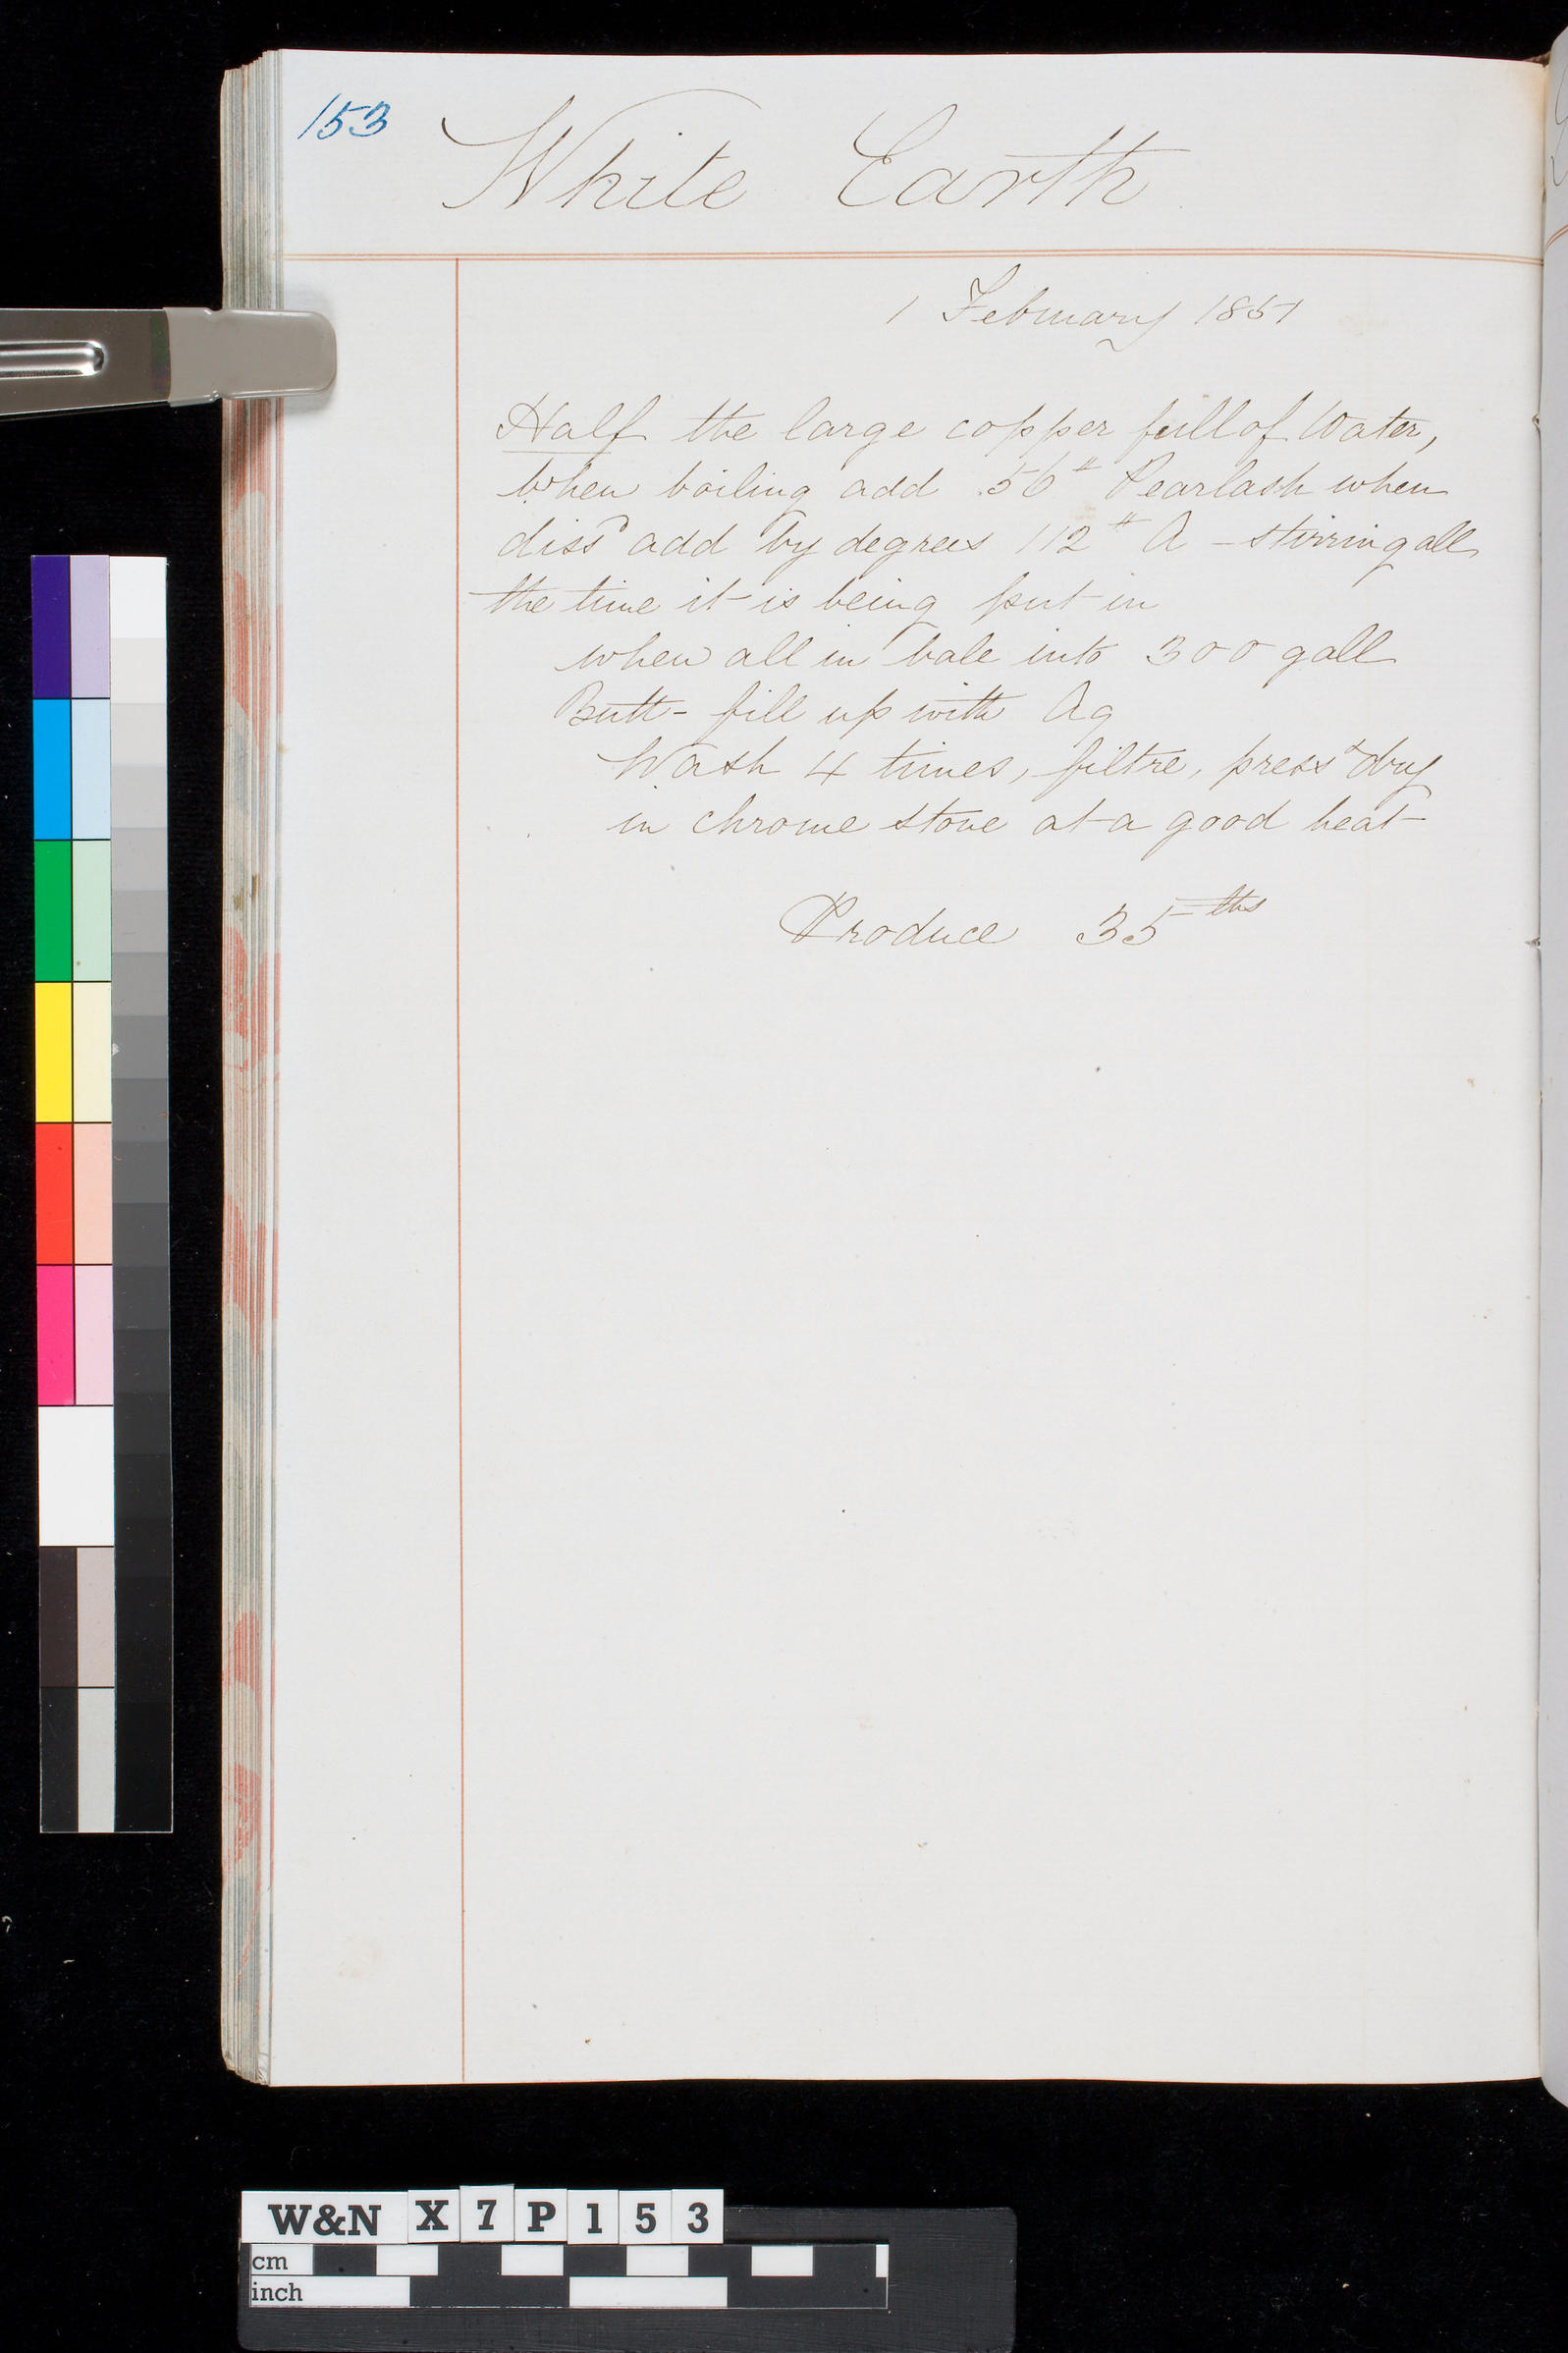 153
White Earth
1 February 1851
Half the large copper full of Water,
When boiling add 56# Pearlash when
dissd add by degrees 112# A - stirring all
the time it is being put in
when all in bale into 300 gall
Butt - fill up with Aq
Wash 4 times, filtre, press & dry
in chrome stove at a good heat
Produce 35 lbs
W&N X7P153
cm
inch